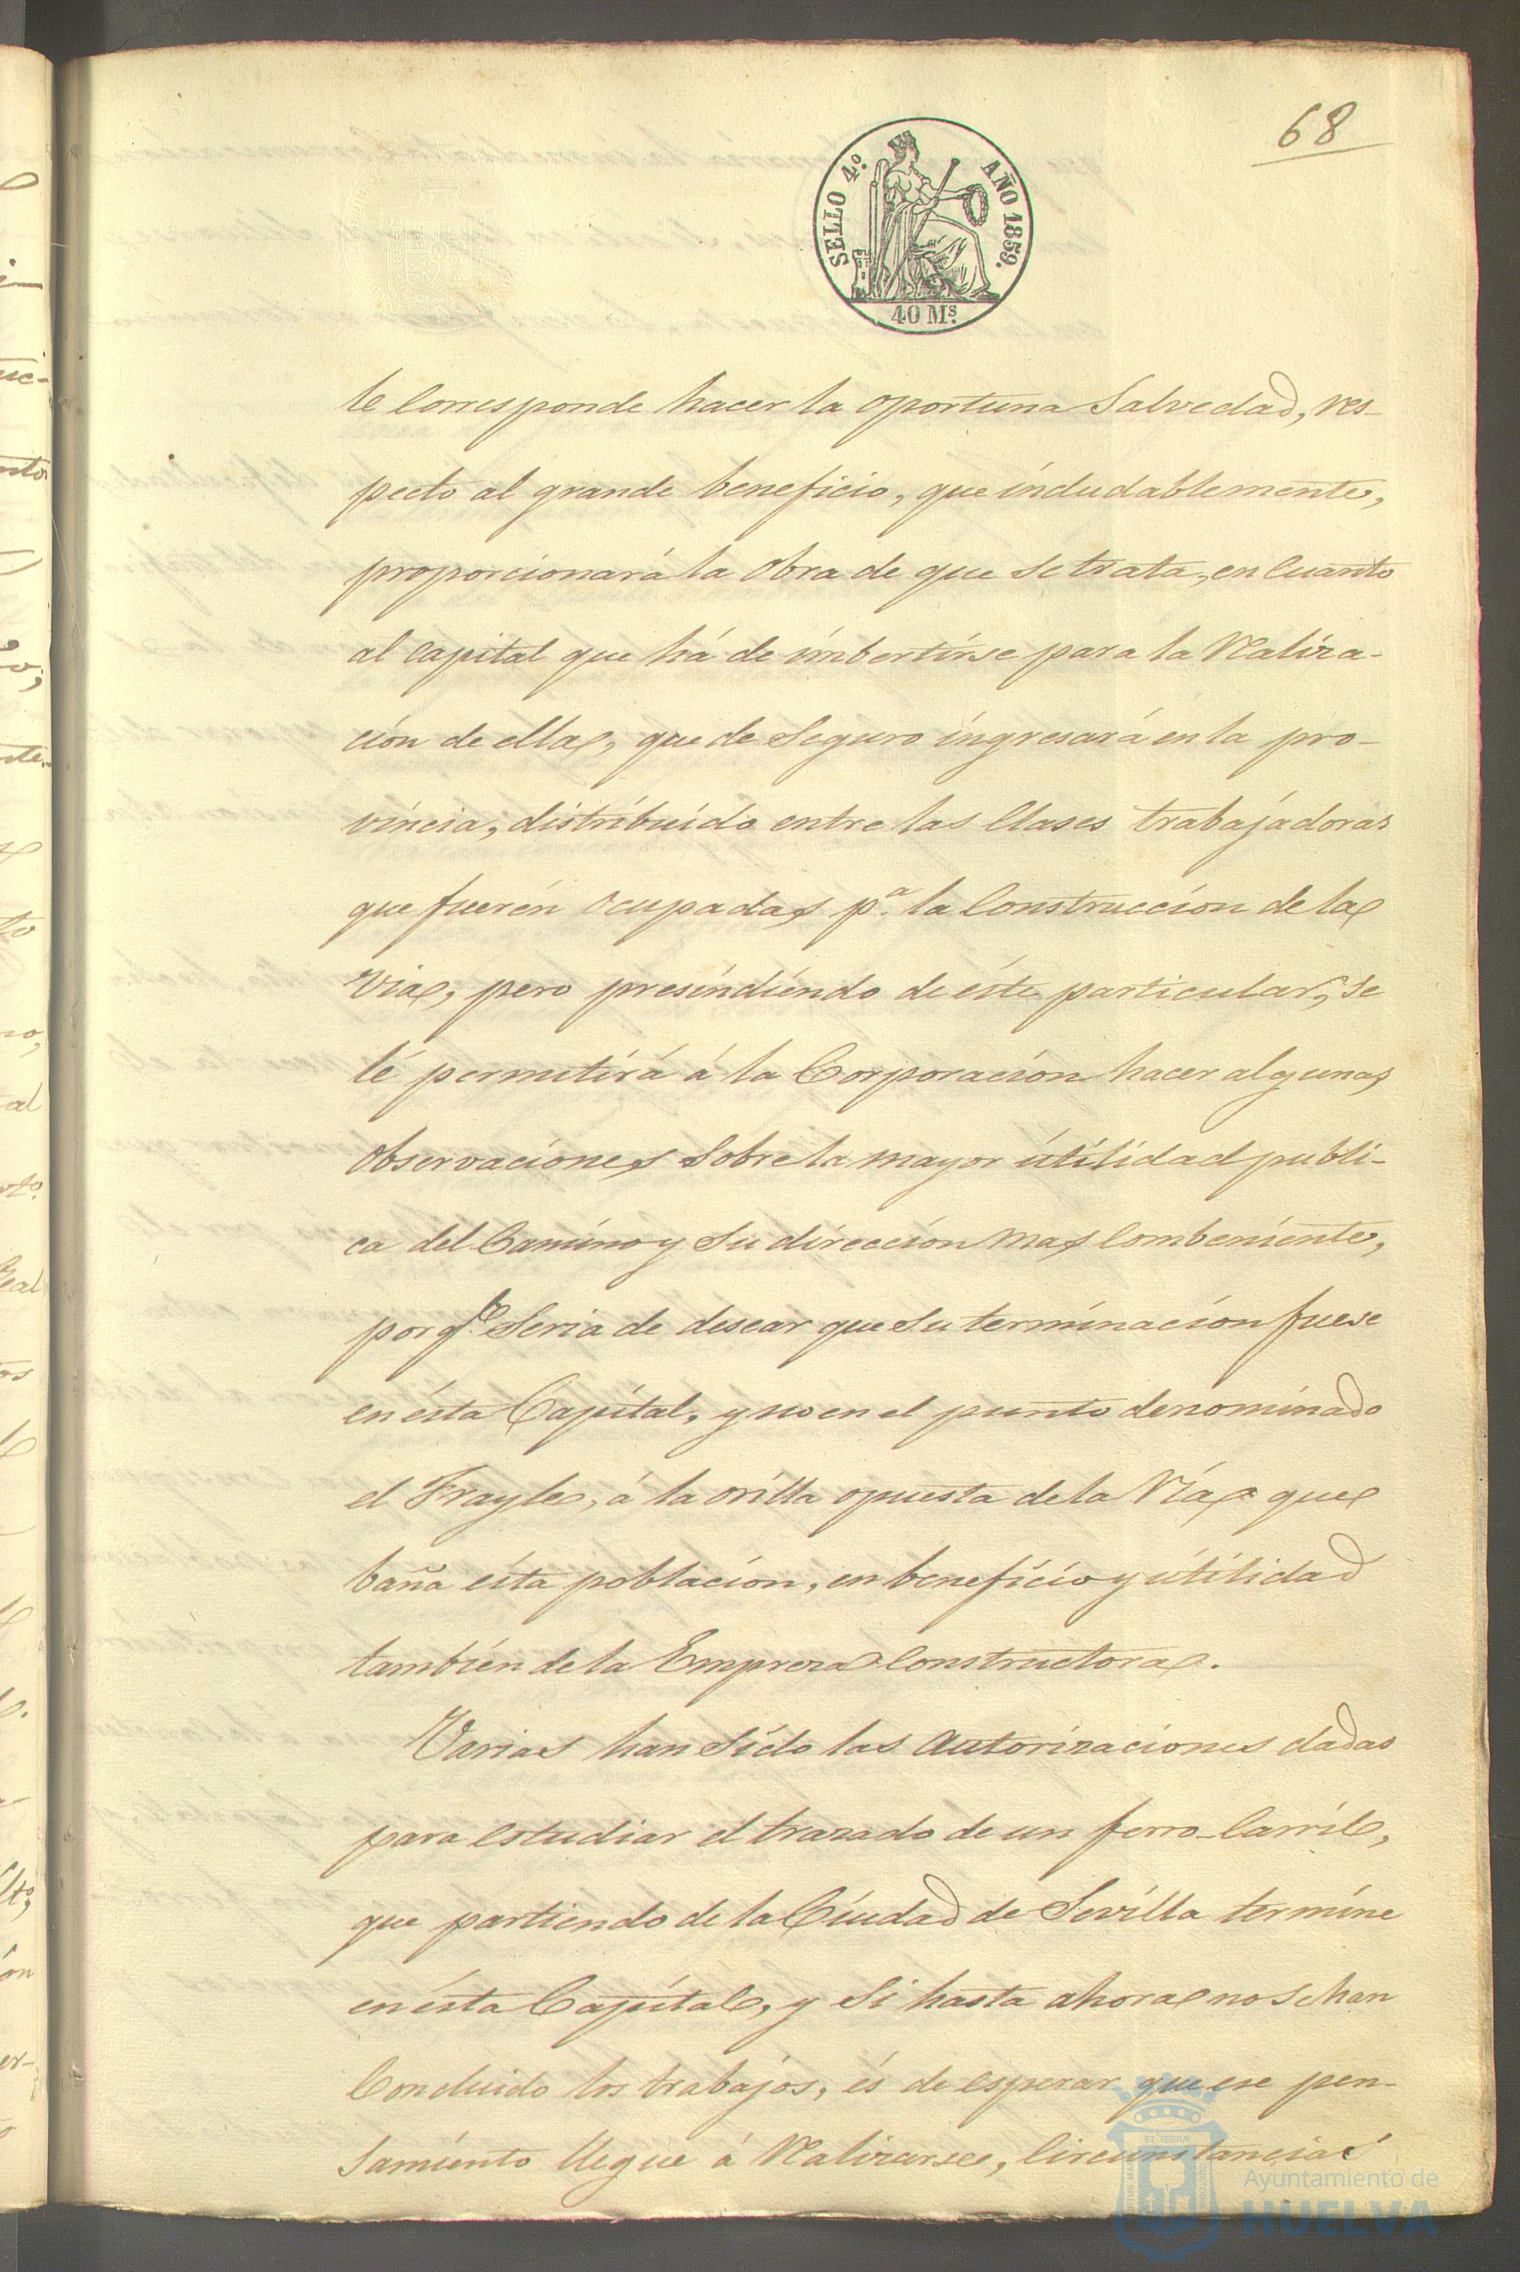 68
SELLO 4º. AÑO 1859.
40 Ms.
le corresponde hacer la oportuna Salvedad, res-
pecto al grande beneficio, que indudablemente,
proporcionará la obra de que se trata, en cuanto
al capital que há de imbertirse para la Realiza-
ción de ella, que de Seguro ingresará en la pro-
vincia, distribuido entre las Clases trabajadoras
que fuerén ocupadas pª. la Construccion de la
Via, pero presindiendo de éste particular, se
lé permitirá á la Corporacion hacer algunas
observaciones sobre la mayor útilidad publi-
ca del Camino y Su direccion mas combeniente,
porqe. Seria de desear que Su terminacion fuese
en ésta Capital, y no en el punto denominado
el Frayle, á la orilla opuesta de la Ría que
baña ésta poblacion, en beneficio y útilidad
tambien de la Empreza Constructora.
Varias han Sido las autorizaciones dadas
para estudiar el trazado de un ferro-Carril,
que partiendo de la Ciudad de Sevilla termine
en ésta Capital, y Si hasta ahora no se han
Concluido los trabajos, és de esperar que ese pen-
samiento llegue á Realizarse, Circunstancias
Ayuntamiento de
HUELVA